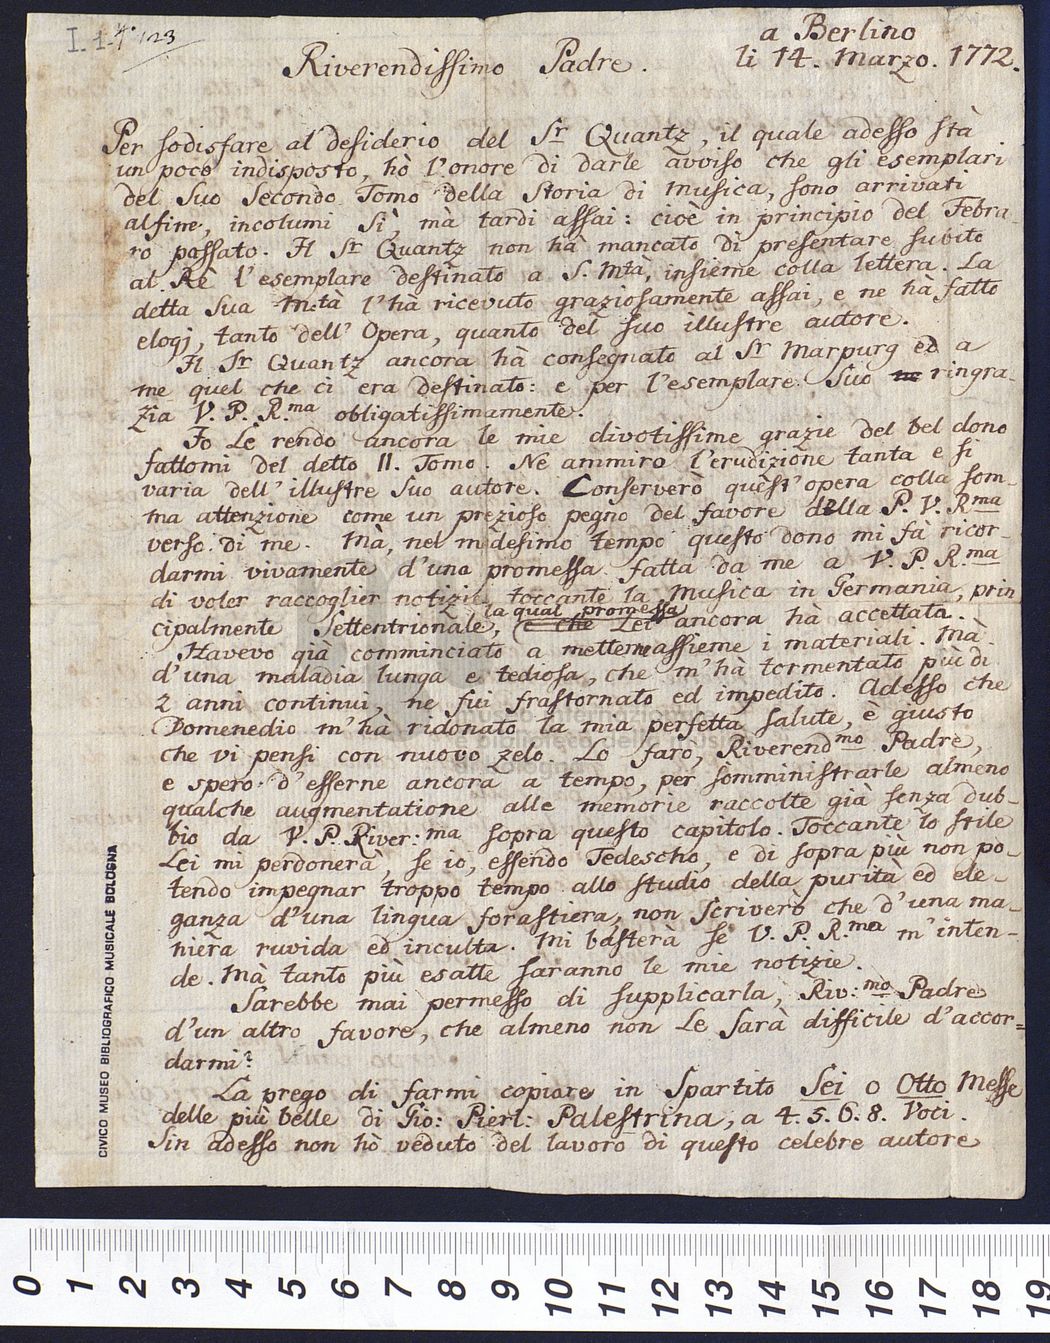 I. 1. 4. 123
a Berlino
Riverendissimo Padre. li 14. Marzo. 1772.
Per sodisfare al desiderio del Sr Quantz, il quale adesso stà
un poco indisposto, hò l'onore di darle avviso che gli esemplari
del Suo Secondo Tomo della Storia di Musica, sono arrivati
alfine, incolumi Sì, mà tardi assai: cioè in principio del Febra-
ro passato. Il Sr Quantz non hà mancato di presentare subito
al Rè l'esemplare destinato a S. Mtà, insieme colla lettera. La
detta Sua Mtà l'hà ricevuto graziosamente assai, e ne hà fatto
elogj, tanto dell'Opera, quanto del suo illustre autore.
Il Sr Quantz ancora hà consegnato al Sr Marpurg ed a
me quel che ci era destinato: e per l'esemplare Suo ringra-
zia V. P. R.ma obligatissimamente.
Io Le rendo ancora le mie divotissime grazie del bel dono
fattomi del detto II. Tomo. Ne ammiro l'erudizione tanta e sì
varia dell'illustre Suo autore. Conserverò quest'opera colla som-
ma attenzione come un prezioso pegno del favore della P. V. R.ma
verso di me. Mà, nel medesimo tempo questo dono mi fà ricor-
darmi vivamente d'una promessa fatta da me a V. P. R.ma
di voler raccoglier notizie toccante la Musica in Germania, prin
la qual promessa
cipalmente Settentrionale, e che Lei ancora hà accettata.
Havevo già comminciato a mettere assieme i materiali. Mà
d'una maladia lunga e tediosa, che m'hà tormentato più di
2 anni continui, ne fui frastornato ed impedito. Adesso che
Domenedio m'hà ridonato la mia perfetta salute, è giusto
che vi pensi con nuovo zelo. Lo farò, Riverendmo Padre,
e spero d'esserne ancora a tempo, per somministrarle almeno
qualche augmentatione alle memorie raccolte già senza dub-
bio da V. P. River:ma sopra questo capitolo. Toccante lo stile
Lei mi perdonerà, se io, essendo Tedescho, e di sopra più non po-
tendo impegnar troppo tempo allo studio della purità ed ele-
ganza d'una lingua forastiera, non scriverò che d'una ma-
niera ruvida ed inculta. Mi basterà se V. P. R.ma m'inten-
de. Mà tanto più esatte saranno le mie notizie.
Sarebbe mai permesso di supplicarla, Riv:mo Padre
d'un altro favore, che almeno non Le sarà difficile d'accor=
darmi?
La prego di farmi copiare in Spartito Sei o Otto Messe
delle più belle di Gio: Pierl: Palestrina, a 4. 5. 6. 8. Voci.
Sin adesso non hò veduto del lavoro di questo celebre autore
CIVICO MUSEO BIBLIOGRAFICO MUSICALE BOLOGNA
0 1 2 3 4 5 6 7 8 9 10 11 12 13 14 15 16 17 18 19